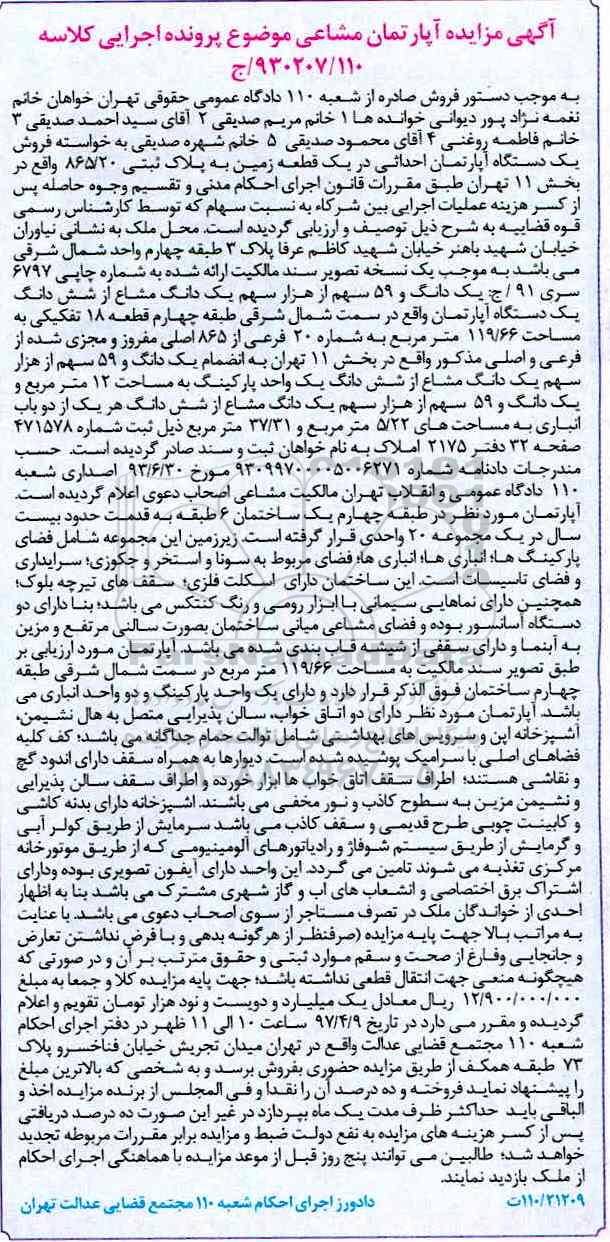 آگهی مزایده آپارتمان مشاعی موضوع پرونده اجرایی کلاسه
۹۳۰۲۰۷/۱۱۰/ج
به موجب دستور فروش صادره از شعبه ۱۱۰ دادگاه عمومی حقوقی تهران خواهان خانم
نغمه نژاد پور دیوانی خوانده ها ۱ خانم مریم صدیقی ۲ آقای سید احمد صدیقی ۳
خانم فاطمه روغنی ۴ آقای محمود صدیقی ۵ خانم شهره صدیقی به خواسته فروش
یک دستگاه آپارتمان احداثی در یک قطعه زمین به پلاک ثبتی ۸۶۵/۲۰ واقع در
بخش ۱۱ تهران طبق مقررات قانون اجرای احکام مدنی و تقسیم وجوه حاصله پس
از کسر هزینه عملیات اجرایی بین شرکاء به نسبت سهام که توسط کارشناس رسمی
قوه قضاییه به شرح ذیل توصیف و ارزیابی گردیده است. محل ملک به نشانی نیاوران
خیابان شهید باهنر خیابان شهید کاظم عرفا پلاک ۳ طبقه چهارم واحد شمال شرقی
می باشد به موجب یک نسخه تصویر سند مالکیت ارائه شده به شماره چاپی ۶۷۹۷
سری ۹۱ / ج: یک دانگ و ۵۹ سهم از هزار سهم یک دانگ مشاع از شش دانگ
یک دستگاه آپارتمان واقع در سمت شمال شرقی طبقه چهارم قطعه ۱۸ تفکیکی به
مساحت ۱۱۹/۶۶ متر مربع به شماره ۲۰ فرعی از ۸۶۵ اصلی مفروز و مجزی شده از
فرعی و اصلی مذکور واقع در بخش ۱۱ تهران به انضمام یک دانگ و ۵۹ سهم از هزار
سهم یک دانگ مشاع از شش دانگ یک واحد پارکینگ به مساحت ۱۲ متر مربع و
یک دانگ و ۵۹ سهم از هزار سهم یک دانگ مشاع از شش دانگ هر یک از دو باب
انباری به مساحت های ۵/۲۲ متر مربع و ۳۷/۳۱ متر مربع ذیل ثبت شماره ۴۷۱۵۷۸
صفحه ۳۲ دفتر ۲۱۷۵ املاک به نام خواهان ثبت و سند صادر گردیده است. حسب
مندرجات دادنامه شماره مورخ ۹۳/۶/۳۰ اصداری شعبه
۱۱۰ دادگاه عمومی و انقلاب تهران مالکیت مشاعی اصحاب دعوی اعلام گردیده است.
آپارتمان مورد نظر در طبقه چهارم یک ساختمان ۶ طبقه به قدمت حدود بیست
سال در یک مجموعه ۲۰ واحدی قرار گرفته است. زیرزمین این مجموعه شامل فضای
پارکینگ ها؛ انباری ها؛ انباری ها؛ فضای مربوط به سونا و استخر و جکوزی؛ سرایداری
و فضای تاسیسات است. این ساختمان دارای اسکلت فلزی؛ سقف های تیرچه بلوک؛
همچنین دارای نماهایی سیمانی با ابزار رومی و رنگ کنتکس می باشد؛ بنا دارای دو
دستگاه آسانسور بوده و فضای مشاعی میانی ساختمان بصورت سالنی مرتفع و مزین
به آبنما و دارای سقفی از شیشه قاب بندی شده می باشد. آپارتمان مورد ارزیابی بر
طبق تصویر سند مالکیت به مساحت ۱۱۹/۶۶ متر مربع در سمت شمال شرقی طبقه
چهارم ساختمان فوق الذکر قرار دارد و دارای یک واحد پارکینگ و دو واحد انباری می
باشد. آپارتمان مورد نظر دارای دو اتاق خواب، سالن پذیرایی متصل به هال نشیمن،
آشپزخانه اپن و سرویس های بهداشتی شامل توالت حمام جداگانه می باشد؛ کف کلیه
فضاهای اصلی با سرامیک پوشیده شده است. دیوارها به همراه سقف دارای اندود گچ
و نقاشی هستند؛ اطراف سقف اتاق خواب ها ابزار خورده و اطراف سقف سالن پذیرایی
و نشیمن مزین به سطوح کاذب و نور مخفی می باشند. اشپزخانه دارای بدنه کاشی
و کابینت چوبی طرح قدیمی و سقف کاذب می باشد سرمایش از طریق کولر آبی
و گرمایش از طریق سیستم شوفاژ و رادیاتورهای آلومینیومی که از طریق موتورخانه
مرکزی تغذیه می شوند تامین می گردد. این واحد دارای آیفون تصویری بوده ودارای
اشتراک برق اختصاصی و انشعاب های اب و گاز شهری مشترک می باشد بنا به اظهار
احدی از خواندگان ملک در تصرف مستاجر از سوی اصحاب دعوی می باشد. با عنایت
به مراتب بالا جهت پایه مزایده (صرفنظر از هرگونه بدهی و با فرض نداشتن تعارض
و جانجایی وفارغ از صحت و سقم موارد ثبتی و حقوق مترتب بر آن و در صورتی که
هیچگونه منعی جهت انتقال قطعی نداشته باشد؛ جهت پایه مزایده کلا و جمعا به مبلغ
۱۲/۹۰۰/۰۰۰/۰۰۰ ریال معادل یک میلیارد و دویست و نود هزار تومان تقویم و اعلام
گردیده و مقرر می دارد در تاریخ ۹۷/۴/۹ ساعت ۱۰ الی ۱۱ ظهر در دفتر اجرای احکام
شعبه ۱۱۰ مجتمع قضایی عدالت واقع در تهران میدان تجریش خیابان فناخسرو پلاک
۷۳ طبقه همکف از طریق مزایده حضوری بفروش برسد و به شخصی که بالاترین مبلغ
را پیشنهاد نماید فروخته و ده درصد آن را نقدا و فی المجلس از برنده مزایده اخذ و
الباقی باید حداکثر ظرف مدت یک ماه بپردازد در غیر این صورت ده درصد دریافتی
پس از کسر هزینه های مزایده به نفع دولت ضبط و مزایده برابر مقررات مربوطه تجدید
خواهد شد؛ طالبین می توانند پنج روز قبل از موعد مزایده با هماهنگی اجرای احکام
از ملک بازدید نمایند.
۱۱۰/۲۱۲۰۹ت دادورز اجرای احکام شعبه ۱۱۰ مجتمع قضایی عدالت تهران